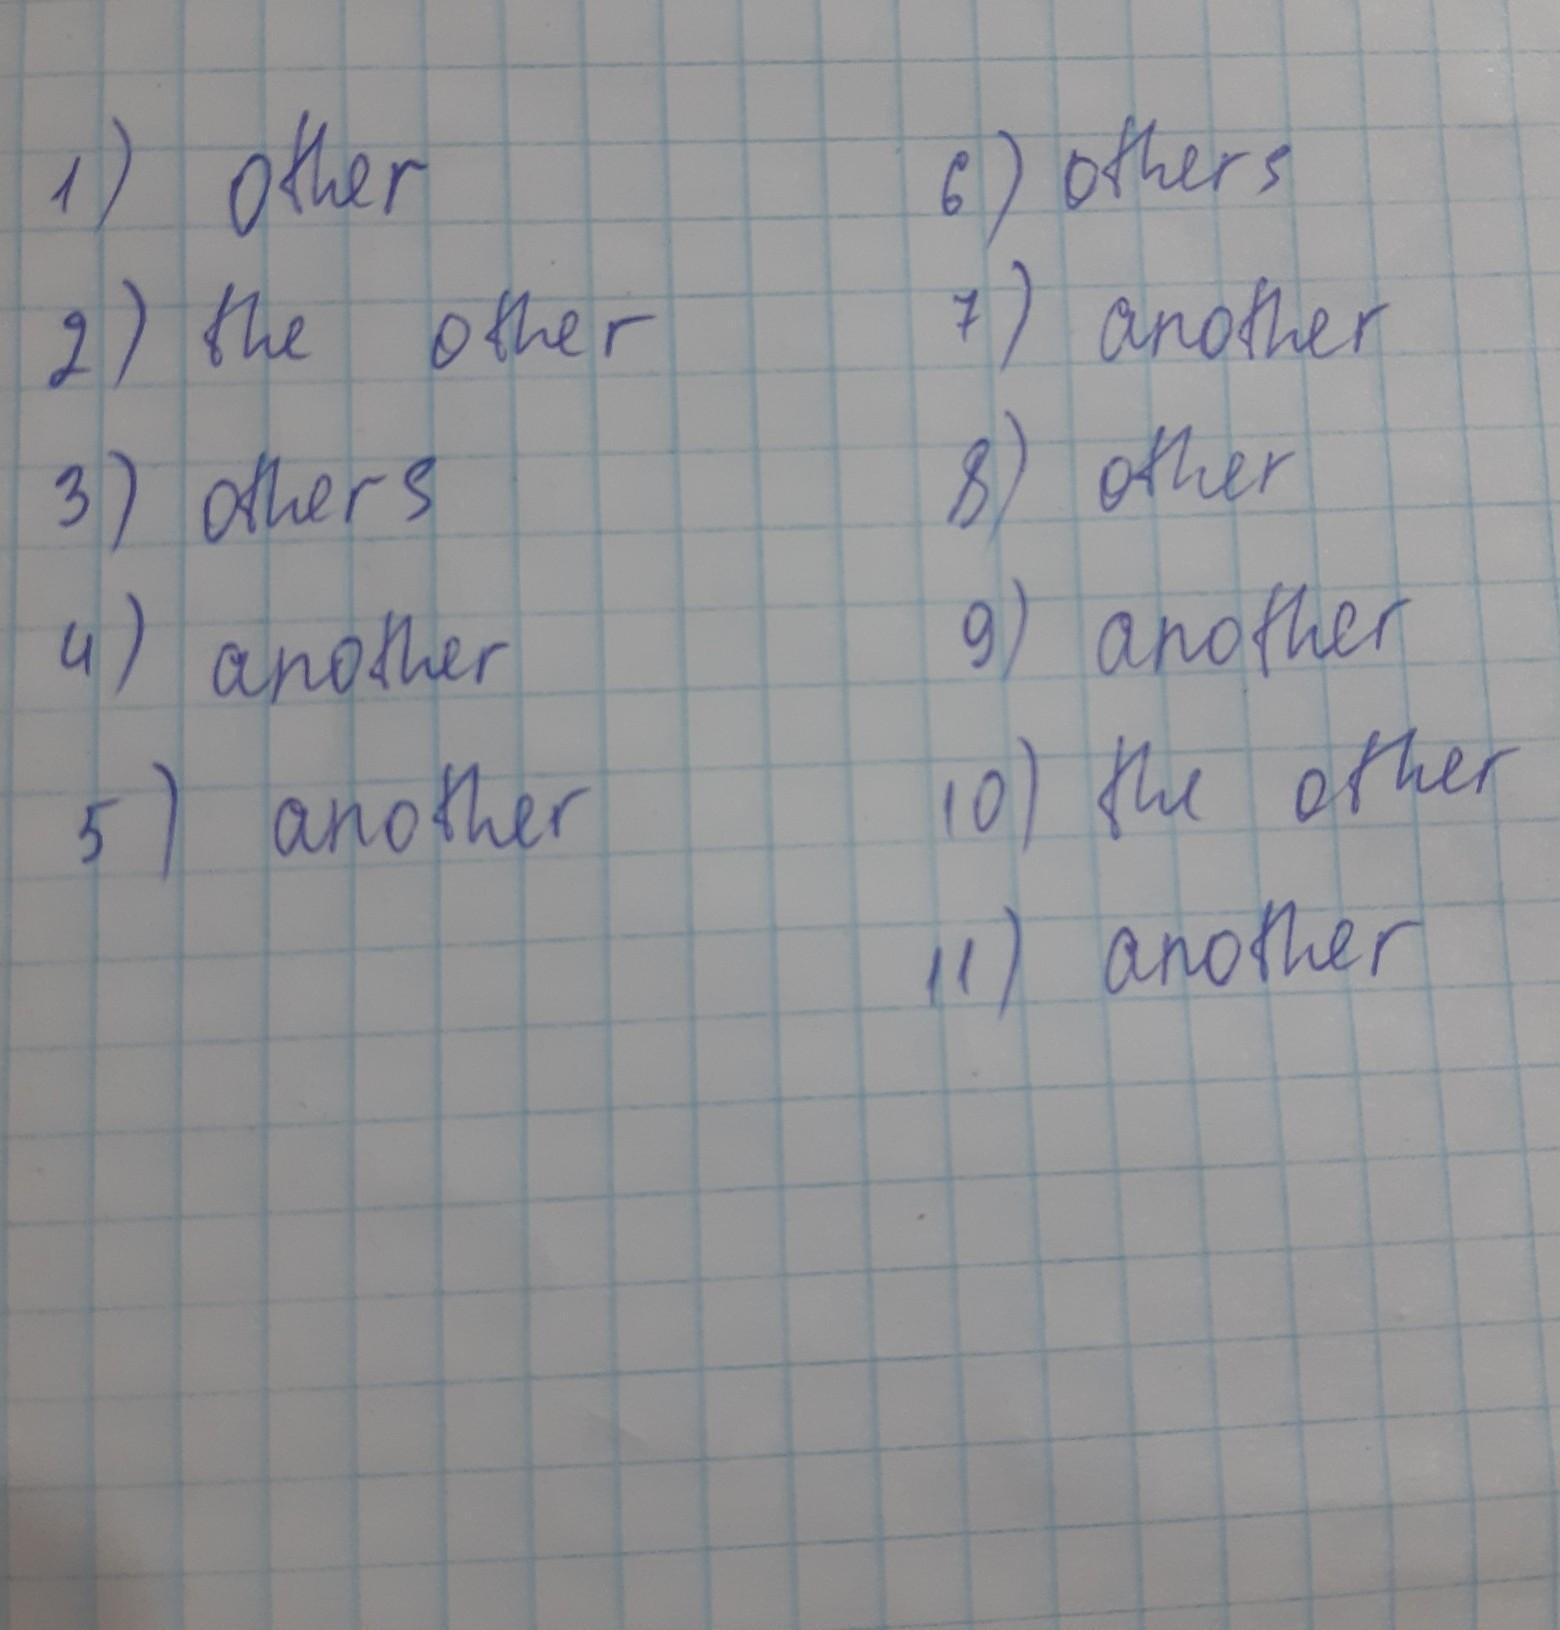 1) other
2) the other
3) others
4) another
5) another
6) others
7) another
8) other
9) another
10) the other
11) another